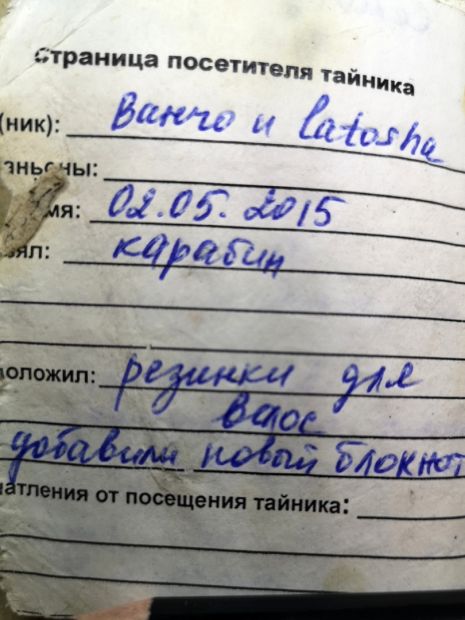 Страница посетителя тайника
(ник): Ванчо и latosha
ны:
мя: 02.05.2015
ял: карабин
оложил: резинки для
волос
добавили новый блокнот
чатления от посещения тайника: